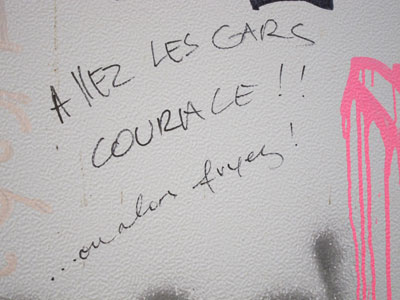 Allez les gars
courage !!
... ou alors fuyez !